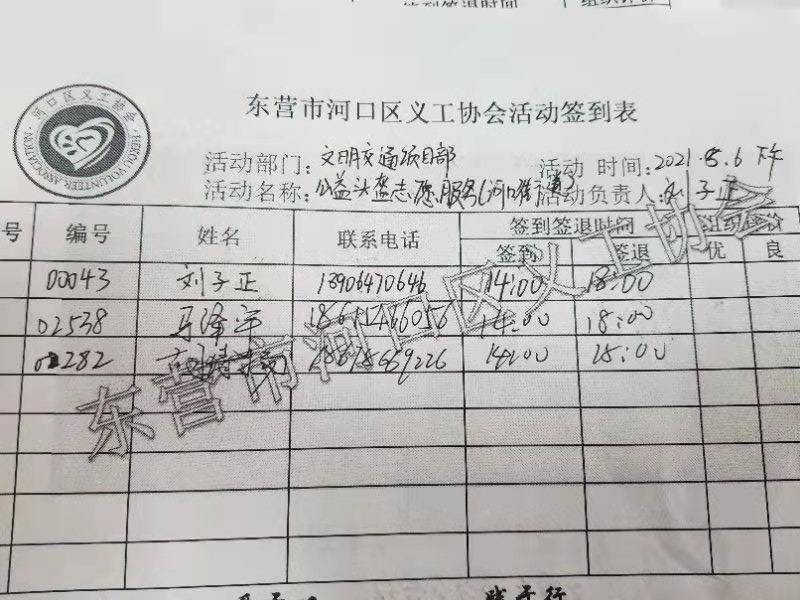 签到签退时间
河口区义工协会
HEKOU VOLUNTEER ASSOCIATION
东营市河口区义工协会活动签到表
活动部门：文明交通项目部 活动 时间：2021.5.6 下午
活动名称：公益头盔志愿服务 活动负责人：刘子正
号 编号 姓名 联系电话 签到签退时间 组织评价
签到 签退 优 良
00043 刘子正 13906470646 14:00 18:00
02538 马泽宇 14:00 18:00
02282 14:00 18:00
东营市河口区义工协会